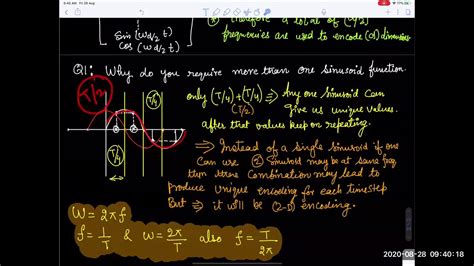 9:40 AM Fri 28 Aug
Sin (Wd/2 t)
Cos (Wd/2 t)
* Therefore a total of (d/2)
frequencies are used to encode (d) dimensions
Q1: Why do you require more than one sinusoid function.
T/2
(T/4)
(T/4)
only (T/4)+(T/4) ⇒ Any one sinusoid can
(T/2)
give us unique values.
after that values keep on repeating.
⇒ Instead of a single sinusoid if one
can use ② sinusoid may be at same freq
then there combination may lead to
produce unique encoding for each timestep
But ⇒ it will be (2-D) encoding.
W = 2πf
f = 1/T & W = 2π/T also f = T/2π
2020-08-28 09:40:18